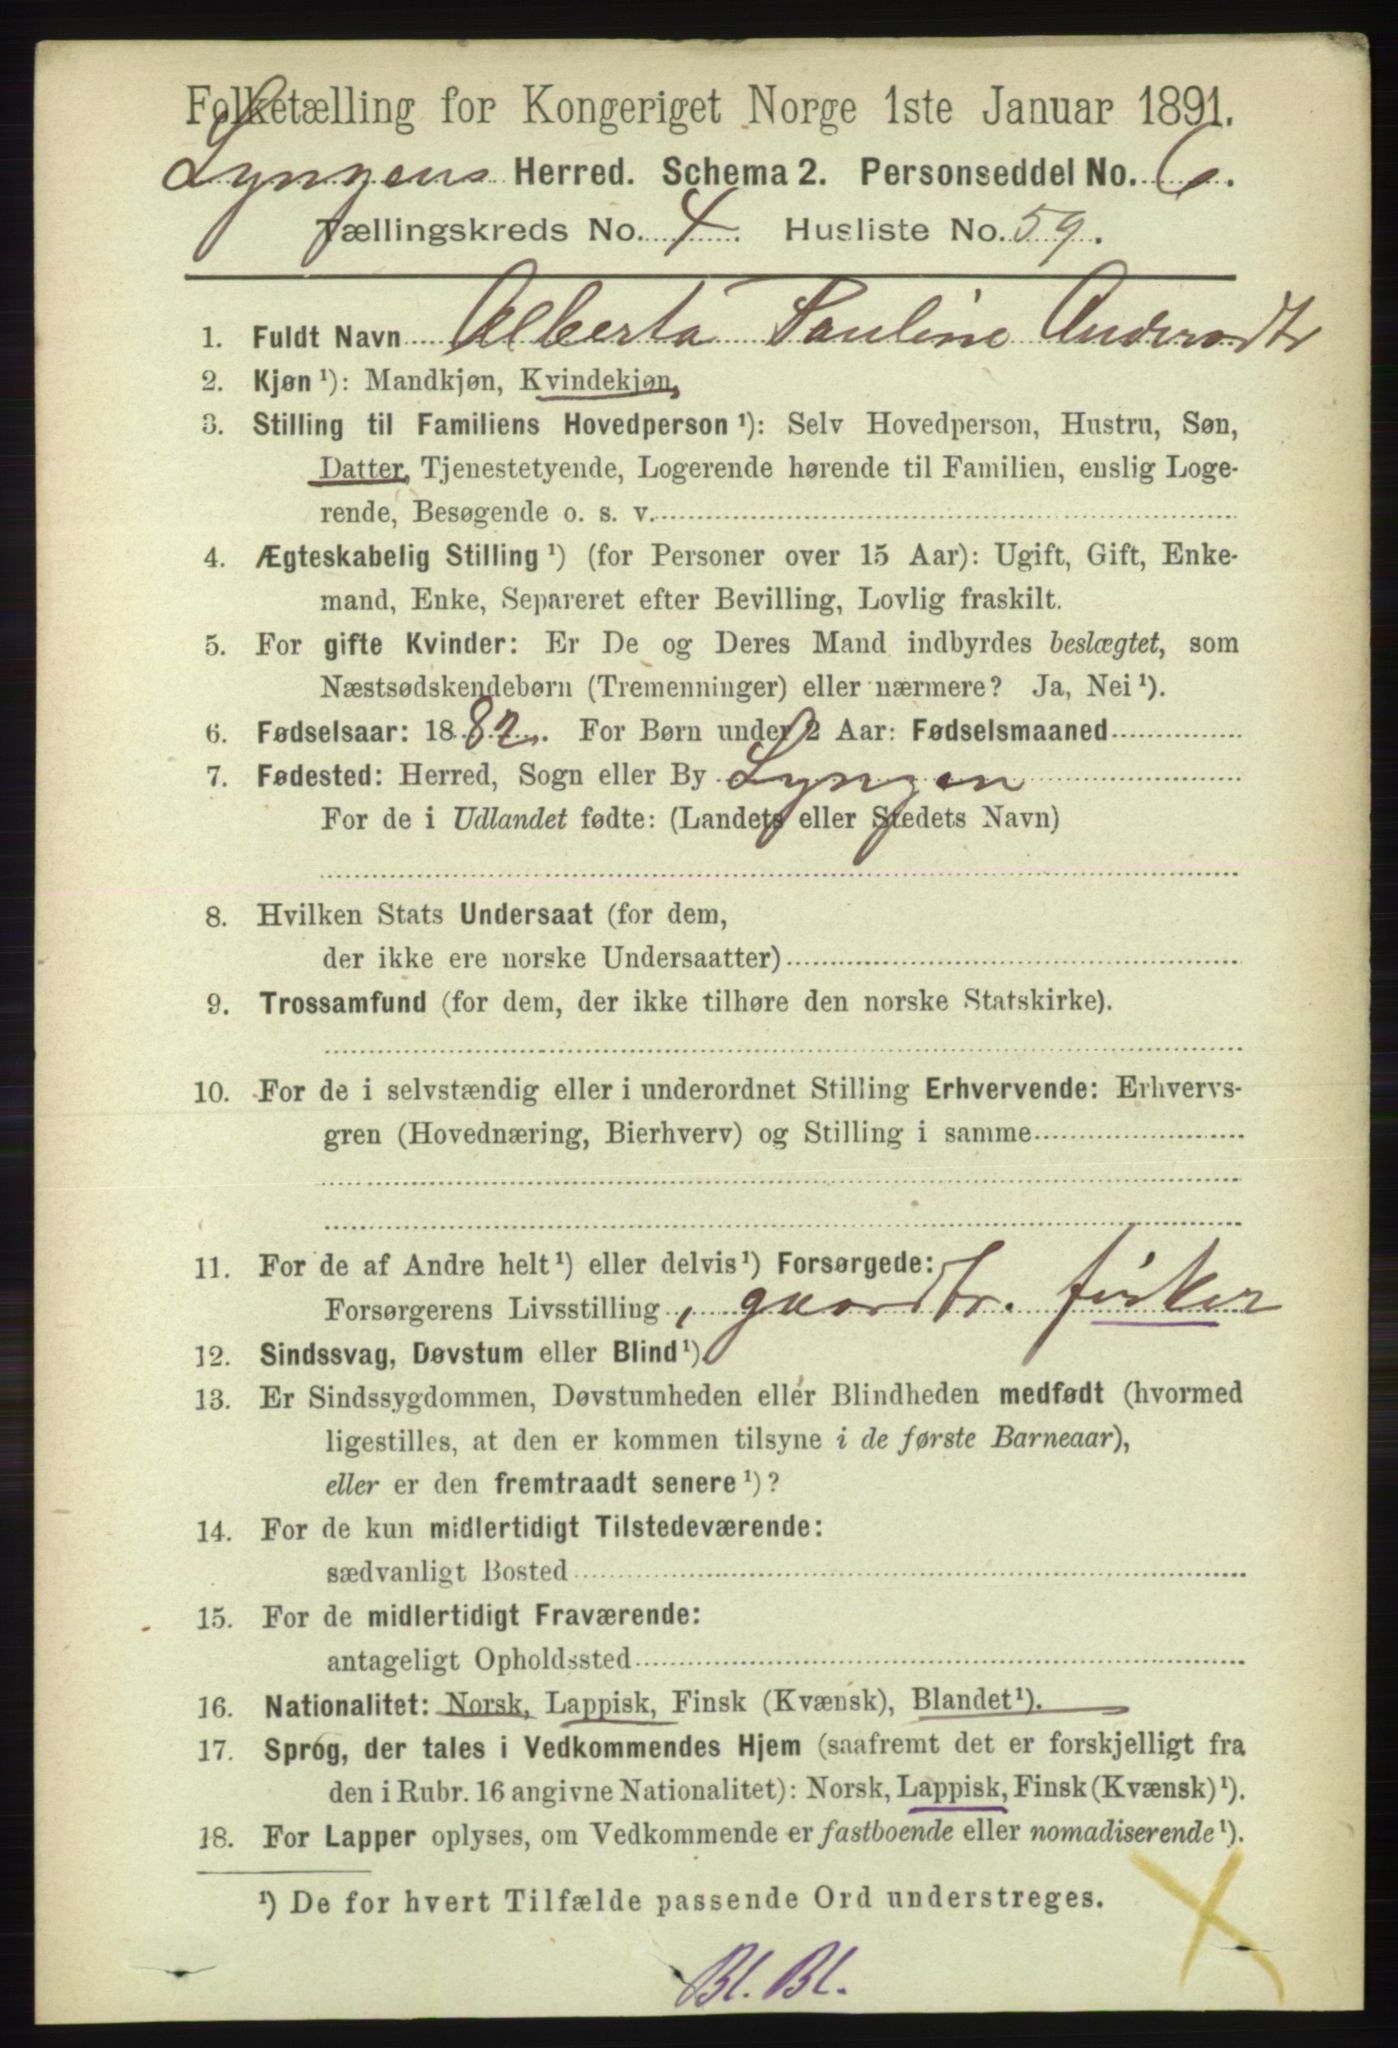 Folketælling for Kongeriget Norge 1ste Januar 1891.
Lyngens Herred. Schema 2. Personseddel No. 6.
Tællingskreds No. 4. Husliste No. 59.
1. Fuldt Navn Alberta Pauline Andersdtr
2. Kjøn ¹): Mandkjøn, Kvindekjøn,
3. Stilling til Familiens Hovedperson ¹): Selv Hovedperson, Hustru, Søn,
Datter, Tjenestetyende, Logerende hørende til Familien, enslig Loge-
rende, Besøgende o. s. v.
4. Ægteskabelig Stilling ¹) (for Personer over 15 Aar): Ugift, Gift, Enke-
mand, Enke, Separeret efter Bevilling, Lovlig fraskilt.
5. For gifte Kvinder: Er De og Deres Mand indbyrdes beslægtet, som
Næstsødskendebørn (Tremenninger) eller nærmere? Ja, Nei ¹).
6. Fødselsaar: 1882. For Børn under 2 Aar: Fødselsmaaned
7. Fødested: Herred, Sogn eller By Lyngen
For de i Udlandet fødte: (Landets eller Stedets Navn)
8. Hvilken Stats Undersaat (for dem,
der ikke ere norske Undersaatter)
9. Trossamfund (for dem, der ikke tilhøre den norske Statskirke).
10. For de i selvstændig eller i underordnet Stilling Erhvervende: Erhvervs-
gren (Hovednæring, Bierhverv) og Stilling i samme
11. For de af Andre helt ¹) eller delvis ¹) Forsørgede:
Forsørgerens Livsstilling, gaardbr. fisker
12. Sindssvag, Døvstum eller Blind ¹).
13. Er Sindssygdommen, Døvstumheden eller Blindheden medfødt (hvormed
ligestilles, at den er kommen tilsyne i de første Barneaar),
eller er den fremtraadt senere ¹)?
14. For de kun midlertidigt Tilstedeværende:
sædvanligt Bosted
15. For de midlertidigt Fraværende:
antageligt Opholdssted
16. Nationalitet: Norsk, Lappisk, Finsk (Kvænsk), Blandet ¹).
17. Sprog, der tales i Vedkommendes Hjem (saafremt det er forskjelligt fra
den i Rubr. 16 angivne Nationalitet): Norsk, Lappisk, Finsk (Kvænsk) ¹).
18. For Lapper oplyses, om Vedkommende er fastboende eller nomadiserende ¹).
¹) De for hvert Tilfælde passende Ord understreges.
Bl. Bl.